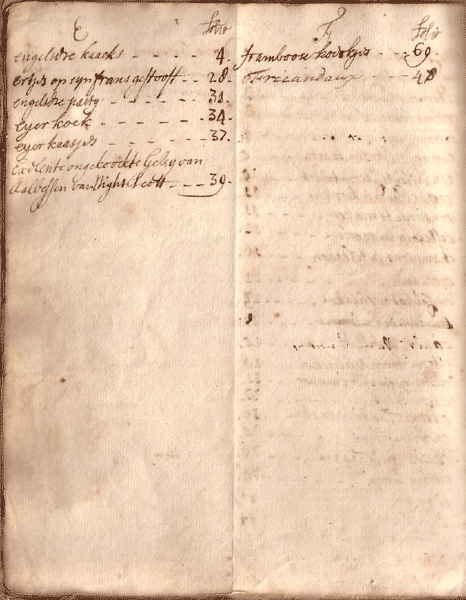 E Folio
engelsche kaacks 4.
ertjes op syn frans gestooft 28.
engelsche pasty 31.
eyer koek 34.
eyer kaasjes 37.
Exelente ongekookte Geley van
Aalbessen van Dight Scott 39.
F Folio
framboose koekjes 69
Fricandaux 48